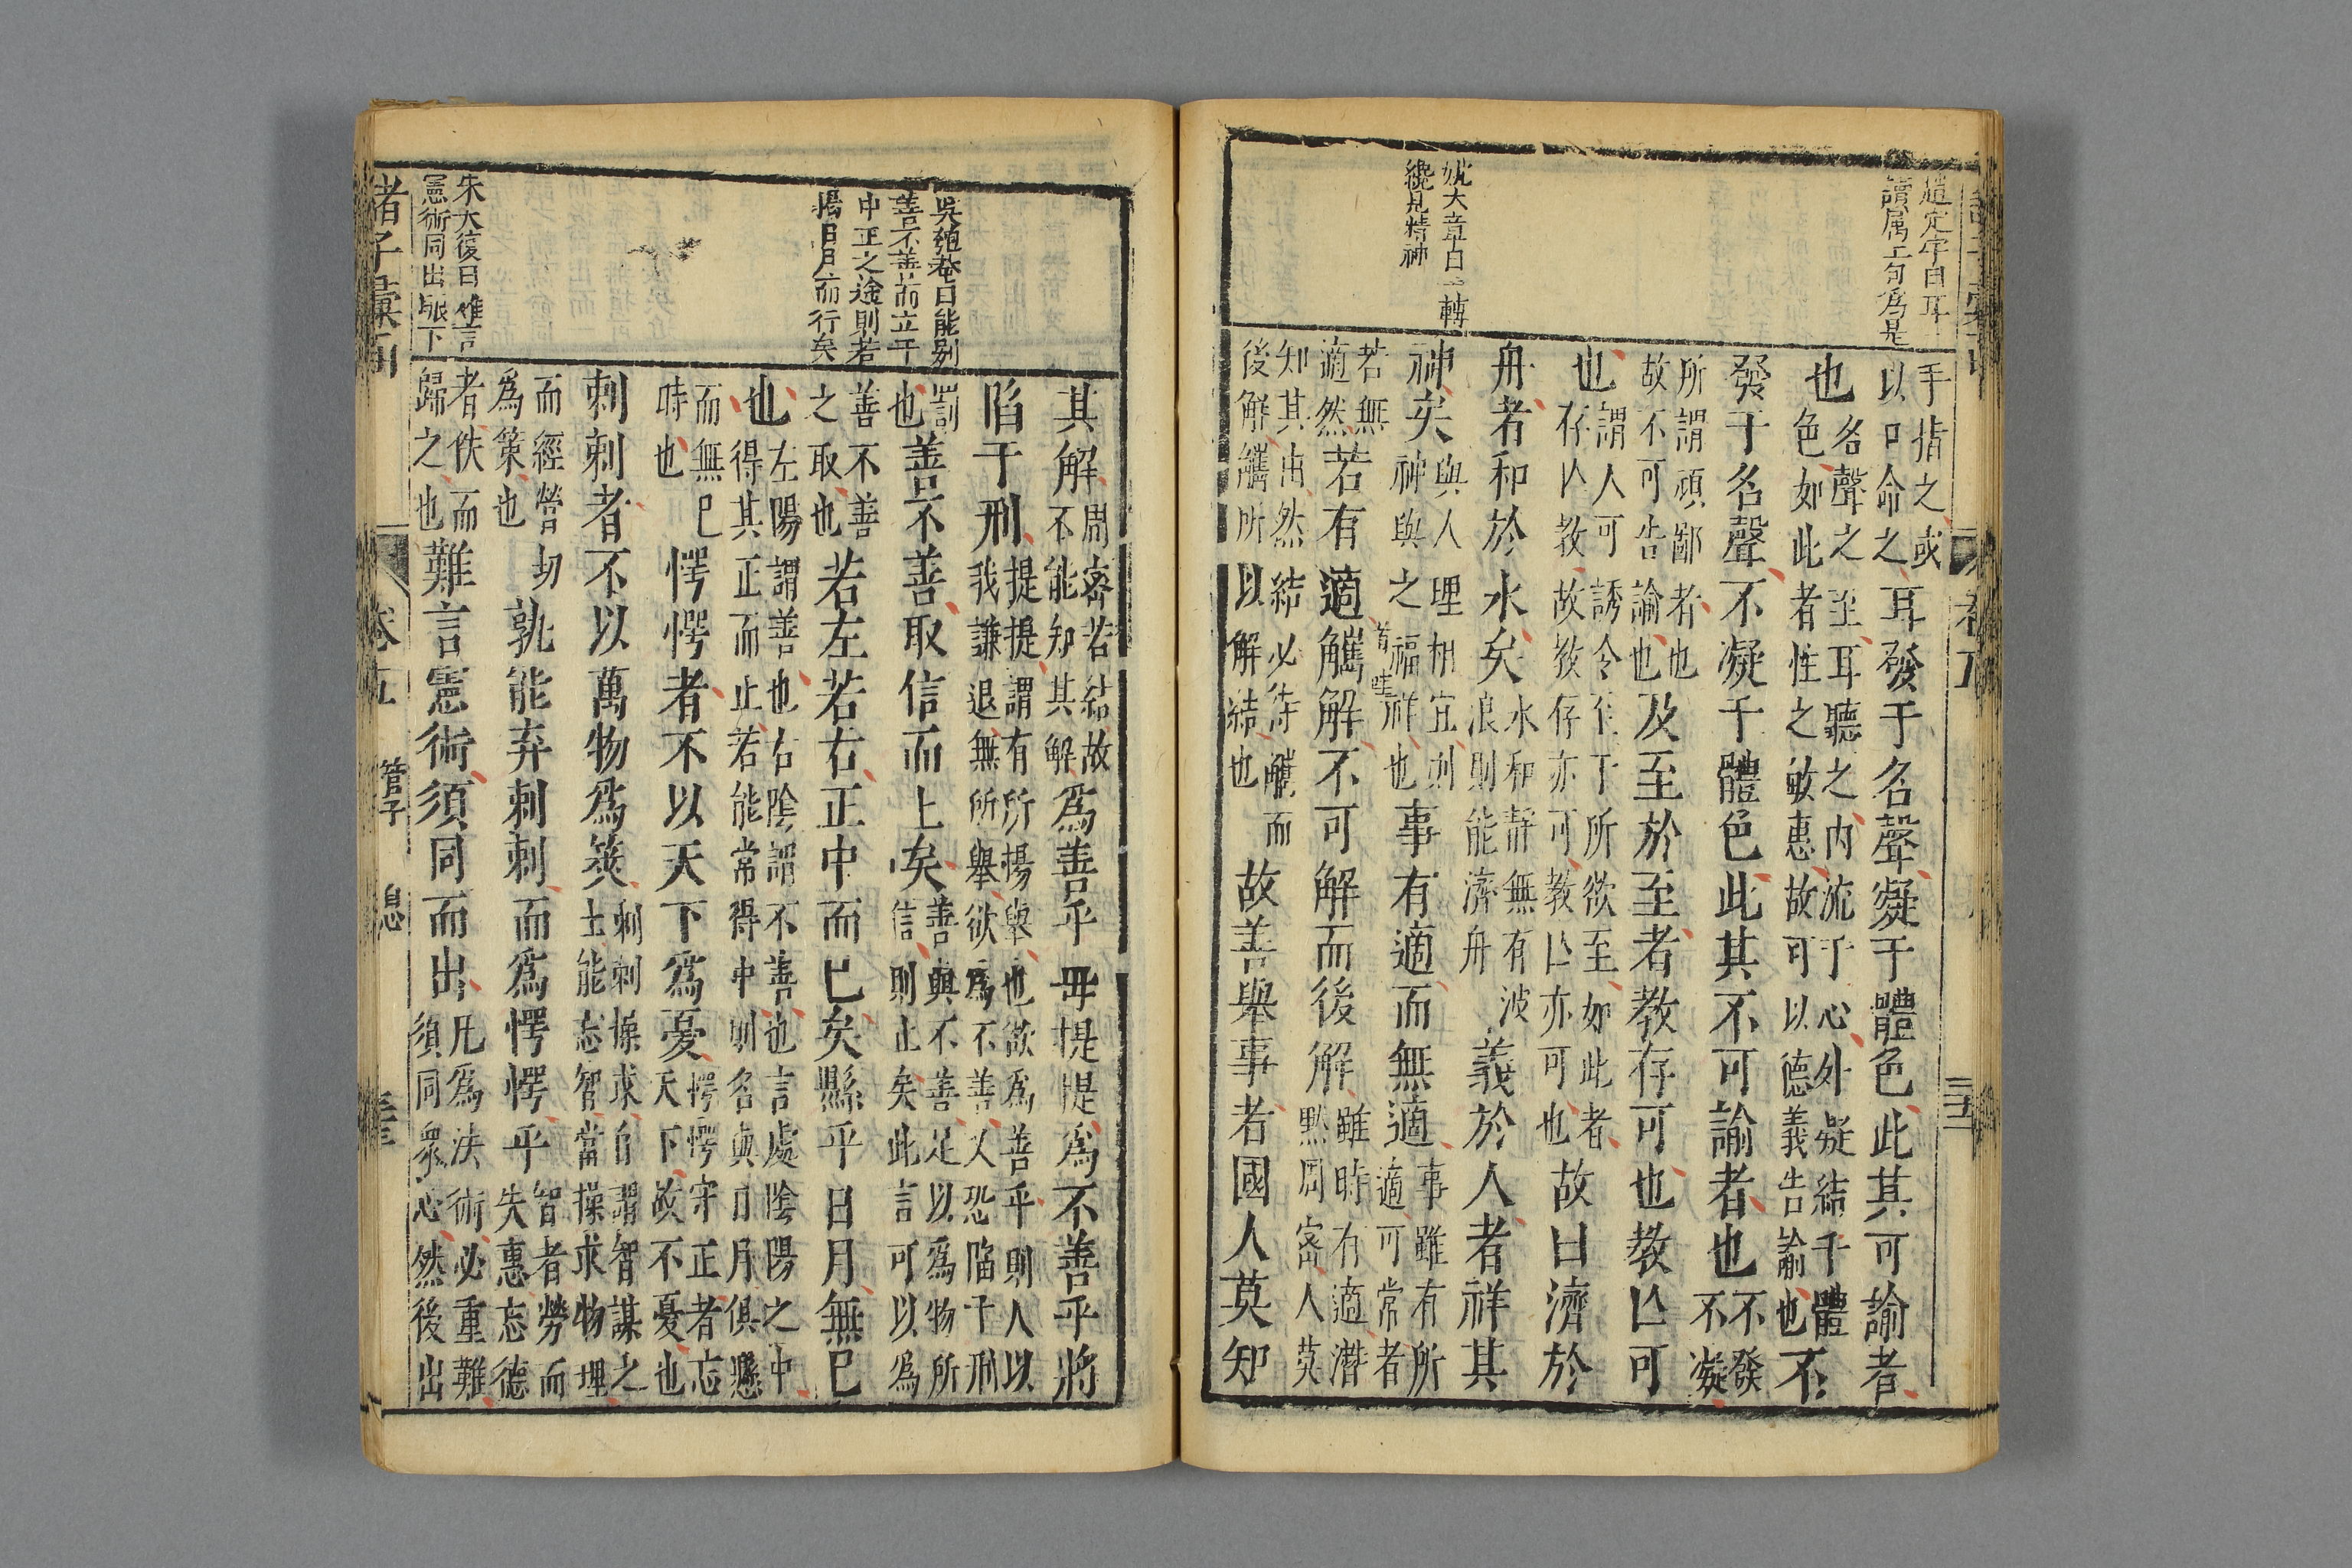 趙定宇曰耳一
讀属上句爲是
姚大章曰一轉
纔見精神
手指之或
以口命之
耳發于名聲凝于體色此其可諭者
也
名聲之至耳聽之内流于心外凝結于體
色如此者性之敏惠故可以德義告諭也
不
發于名聲不凝于體色此其不可諭者也
不發
不凝
所謂頑鄙者也
故不可告論也
及至於至者教存可也教亾可
也
謂人可誘令至于所欲至如此者
存亾教故教存亦可教亾亦可也
故曰濟於
舟者和於水矣
水和靜無有波
浪則能濟舟
義於人者祥其
神矣
與人理相宜則
神與之福祥也
事有適而無適
事雖有所
適可常者
若無
適然
若有適觿解不可解而後解
雖時有適潜
黙周密人莫
知其由然結必待觿而
後解觿所以解結也
故善舉事者國人莫知
其解
周密若結故
不能知其解
爲善乎毋提提爲不善乎將
陷于刑
提提謂有所揚舉也欲爲善乎則人以
我謙退無所舉欲爲不善乂恐陷于刑
罰
也
善不善取信而止矣
善與不善足以爲物所
信則止矣此言可以爲
善不善
之取也
若左若右正中而已矣縣乎日月無已
也
左陽謂善也右陰謂不善也言處陰陽之中
得其正而止若能常得中則名與日月俱懸
而無已
時也
愕愕者不以天下爲憂
愕愕守正者忘
天下故不憂也
刺刺者不以萬物爲筴
刺刺操求自謂智謀之
士能忘智當操求物理
而經營
爲策也
孰能弃刺刺而爲愕愕乎
智者勞而
失惠忘德
者佚而
歸之也
難言憲術須同而出
凡爲法術必重難
須同衆心然後出
吳殖菴曰能别
善不善而立于
中正之途則若
揭日月而行矣
朱大復曰難言
憲術同出脹下
諸子彙函
卷五
管子
三十三